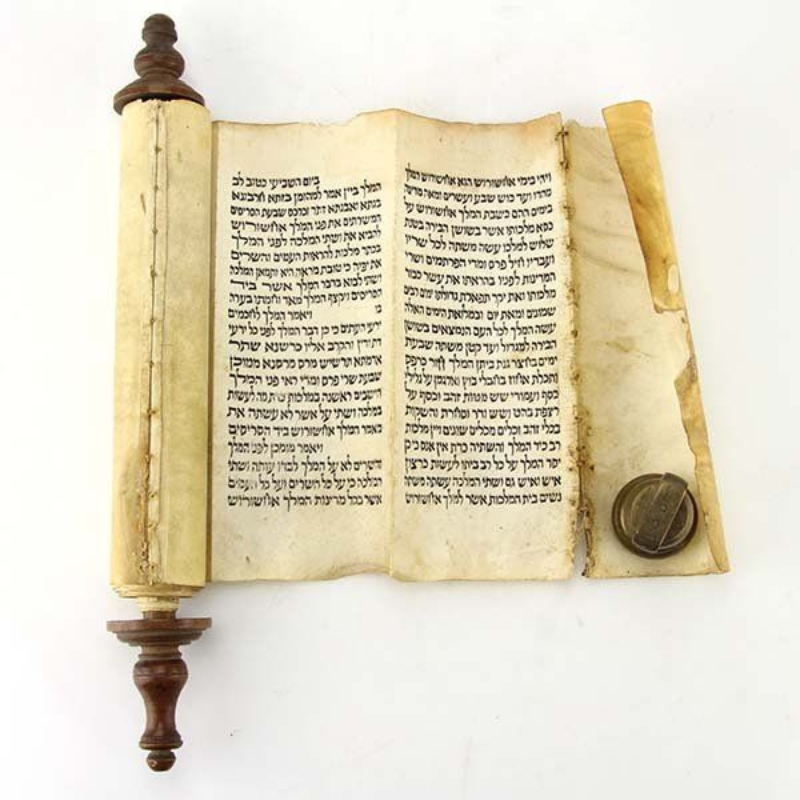 ויהי בימי אחשורוש הוא אחשורוש המלך
מהדו ועד כוש שבע ועשרים ומאה מדינה
בימים ההם כשבת המלך אחשורוש על
כסא מלכותו אשר בשושן הבירה בשנת
שלוש למלכו עשה משתה לכל שריו
ועבדיו חיל פרס ומדי הפרתמים ושרי
המדינות לפניו בהראתו את עשר כבוד
מלכותו ואת יקר תפארת גדולתו ימים רבים
שמונים ומאת יום ובמלואת הימים האלה
עשה המלך לכל העם הנמצאים בשושן
הבירה למגדול ועד קטן משתה שבעת
ימים בחצר גנת ביתן המלך חור כרפס
ותכלת אחוז בחבלי בוץ וארגמן על גלילי
כסף ועמודי שש מטות זהב וכסף על
רצפת בהט ושש ודר וסחרת והשקות
בכלי זהב וכלים מכלים שונים ויין מלכות
רב כיד המלך והשתיה כדת אין אנס כי כן
יסד המלך על כל רב ביתו לעשות כרצון
איש ואיש גם ושתי המלכה עשתה משתה
נשים בית המלכות אשר למלך אחשורוש
ביום השביעי כטוב לב
המלך ביין אמר למהומן בזתא חרבונא
בגתא ואבגתא זתר וכרכס שבעת הסריסים
המשרתים את פני המלך אחשורוש
להביא את ושתי המלכה לפני המלך
בכתר מלכות להראות העמים והשרים
את יפיה כי טובת מראה היא ותמאן המלכה
ושתי לבוא בדבר המלך אשר ביד
הסריסים ויקצף המלך מאד וחמתו בערה
בו ויאמר המלך לחכמים
ידעי העתים כי כן דבר המלך לפני כל ידעי
דת ודין והקרב אליו כרשנא שתר
אדמתא תרשיש מרס מרסנא ממוכן
שבעת שרי פרס ומדי ראי פני המלך
הישבים ראשנה במלכות כדת מה לעשות
במלכה ושתי על אשר לא עשתה את
מאמר המלך אחשורוש ביד הסריסים
ויאמר מומכן לפני המלך
והשרים לא על המלך לבדו עותה ושתי
המלכה כי על כל השרים ועל כל העמים
אשר בכל מדינות המלך אחשורוש